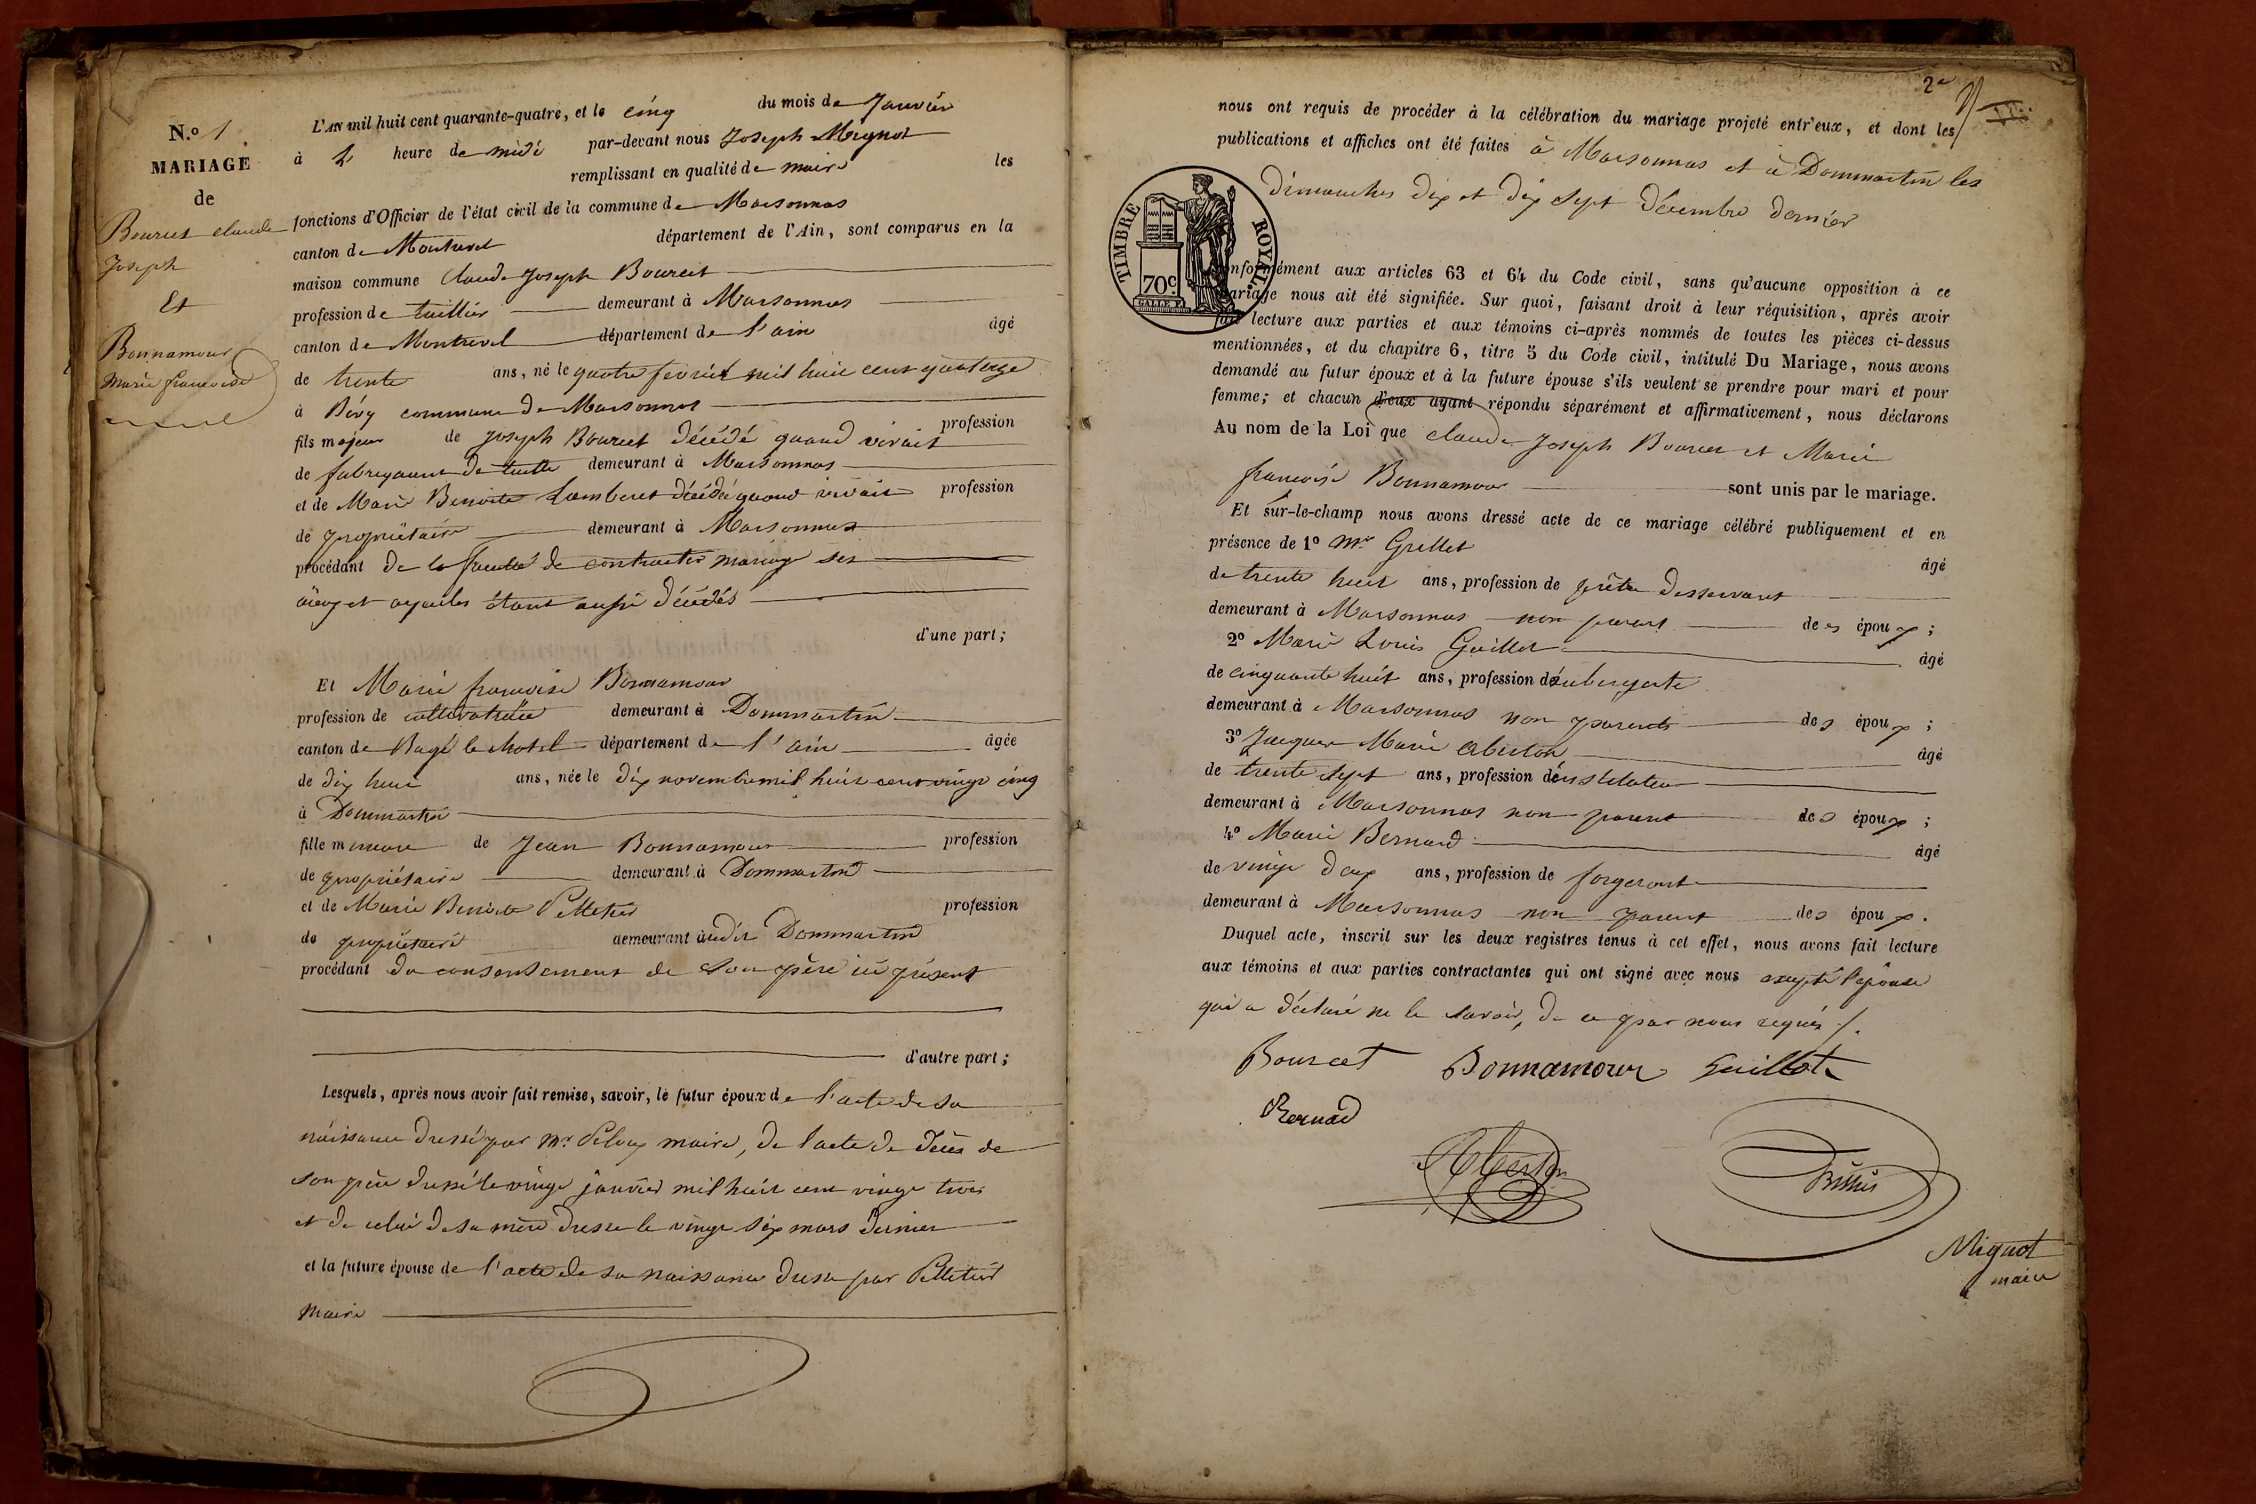 N.o 1
MARIAGE
de
Bourcet claude
Joseph
Et
Bonnamour
marie francoise
L'AN mil huit cent quarante-quatre, et le cinq du mois de Janvier
à 2 heure de midi par-devant nous Joseph Mignot
remplissant en qualité de maire les
fonctions d'Officier de l'état civil de la commune de Marsonnas
canton de Montrevel département de l'Ain, sont comparus en la
maison commune Claude Joseph Bourcet
profession de tuillier demeurant à Marsonnas
canton de Montrevel département de l'ain âgé
de trente ans, né le quatre fevrier mil huit cent quatorze
à Bévy commune de Marsonnas
fils majeur de Joseph Bourcet décédé quand vivait profession
de fabriquant de tuille demeurant à Marsonnas
et de Marie Benoite Lambert décédé quand vivait profession
de propriétaire demeurant à Marsonnas
procédant de la faculté de contracter mariage ses
aieux et ayeules étant aussi décédés
d'une part;
Et Marie francoise Bonnamour
profession de cultivatrice demeurant à Dommartin
canton de Bagé le chatel département de l'ain âgée
de dix huit ans, née le dix novembre mil huit cent vingt cinq
à Dommartin
fille mineure de Jean Bonnamour profession
de propriétaire demeurant à Dommartin
et de Marie Benoite Pelletier profession
de propriétaire demeurant audit Dommartin
procédant du consentement de son père ici présent
d'autre part;
Lesquels, après nous avoir fait remise, savoir, le futur époux de l'acte de sa
naissance dressé par Mr. maire, de l'acte de décès de
son père dressé le vingt janvier mil huit cent vingt trois
et de celui de sa mère dressé le vingt six mars dernier
et la future épouse de l'acte de sa naissance dressé par Pelletier
maire
2e
nous ont requis de procéder à la célébration du mariage projeté entr'eux, et dont les
publications et affiches ont été faites à Marsonnas et à Dommartin les
dimanches dix et dix sept décembre dernier
TIMBRE ROYAL
70c.
conformément aux articles 63 et 64 du Code civil, sans qu'aucune opposition à ce
mariage nous ait été signifiée. Sur quoi, faisant droit à leur réquisition, après avoir
fait lecture aux parties et aux témoins ci-après nommés de toutes les pièces ci-dessus
mentionnées, et du chapitre 6, titre 5 du Code civil, intitulé Du Mariage, nous avons
demandé au futur époux et à la future épouse s'ils veulent se prendre pour mari et pour
femme; et chacun d'eux ayant répondu séparément et affirmativement, nous déclarons
Au nom de la Loi que claude Joseph Bourcet et Marie
francoise Bonnamour sont unis par le mariage.
Et sur-le-champ nous avons dressé acte de ce mariage célébré publiquement et en
présence de 1o Mr Grillet âgé
de trente huit ans, profession de prêtre desservant
demeurant à Marsonnas non parent des époux;
2o Marie Louis Guillot âgé
de cinquante huit ans, profession d'aubergiste
demeurant à Marsonnas non parents des époux;
3o Jacques Marie Aberton âgé
de trente sept ans, profession d'instituteur
demeurant à Marsonnas non parent des époux;
4o Marie Bernard âgé
de vingt deux ans, profession de forgeront
demeurant à Marsonnas non parent des époux.
Duquel acte, inscrit sur les deux registres tenus à cet effet, nous avons fait lecture
aux témoins et aux parties contractantes qui ont signé avec nous excepté l'épouse
qui a déclaré ne le savoir, de ce par nous requis /.
Bourcet Bonnamour Guillot
Bernard
Aberton
Mignot
maire